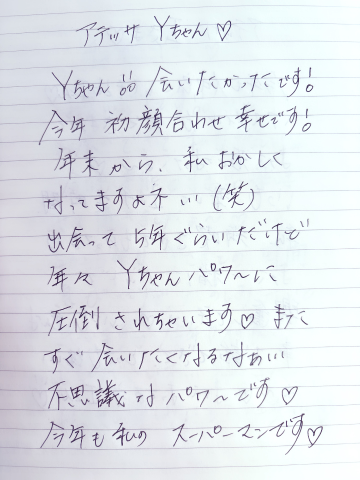 アテッサ Yちゃん♡
Yちゃん 会いたかったです!
今年 初顔合わせ 幸せです!
年末から、私おかしく
なってますよネ…(笑)
出会って 5年ぐらいだけど
年々 Yちゃんパワ〜に
圧倒 されちゃいます♡ また
すぐ 会いたくなるなぁ…
不思議なパワ〜です♡
今年も私の スーパーマンです♡